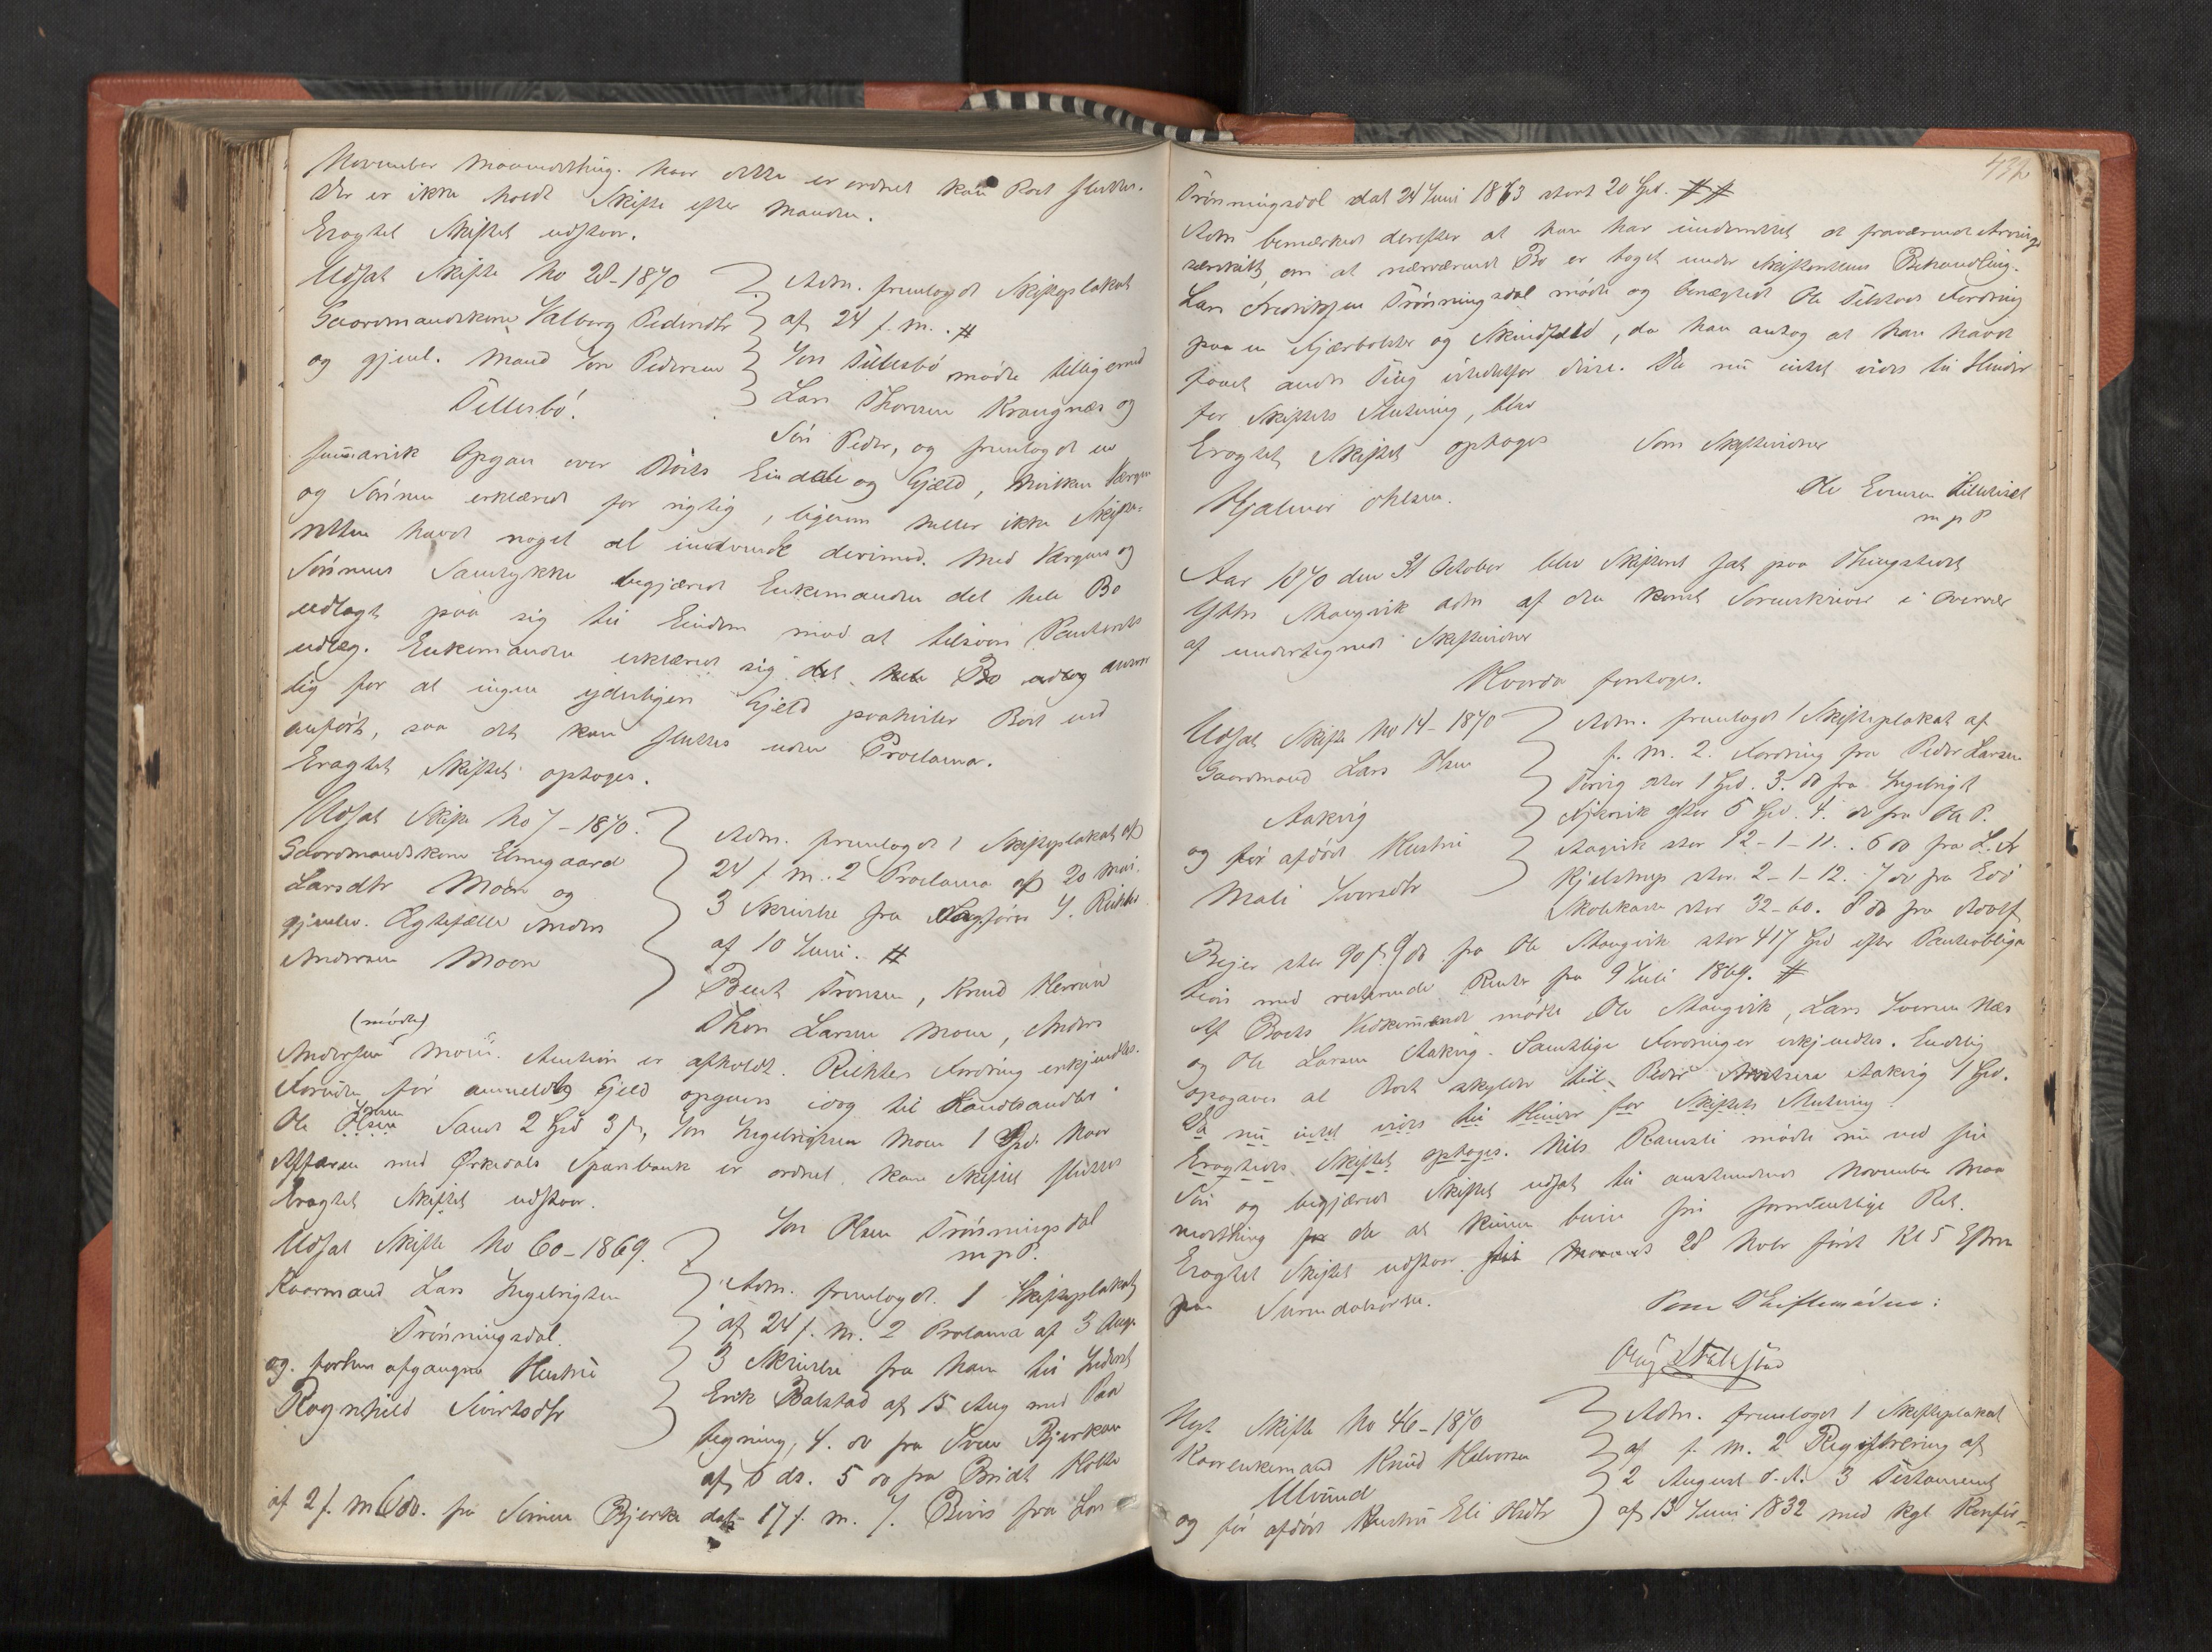 November Maanedsthing. Naar dette er ordnet kan Boet sluttes.
Der er ikke holdt Skifte efter Manden.
Eragtet Skiftet udstaar.
Udsat Skifte No 28-1870
Gaardmandskone Valborg Pedersdtr
og gjenl. Mand Jon Pedersen
Tellesbö.
Adm. fremlagde Skifteplakat
af 24 f. M. #
Jon Tellesbö mödte tilligemed
Lars Thoresen Krangnæs og
Sön Peder, og fremlagde en
summarisk Opgave over Boets Eiendele og Gjæld, hvilken Værgen
og Sönnen erklærede for rigtig, ligesom heller ikke Skifte-
retten havde noget at indvende derimod. Med Værgens og
Sönnens Samtykke begjærede Enkemanden det hele Bo
udlagt paa sig til Eiendom mod at tilsvare
udlæg. Enkemanden erklærede sig det hele Bo udlag ansvar
lig for at ingen yderligere Gjæld paahviler Boet end
anfört, saa det kan sluttes uden Proclama.
Eragtet Skiftet optages.
Udsat Skifte No 7-1870.
Gaardmandskone Elmegaard
Larsdtr Moen og
gjenlev. Ægtefælle Anders
Andersen Moen
Adm. fremlagde 1 Skifteplakat af
24 f. M. 2 Proclama af 20 Mai.
3 Skrivelse fra Sagförer J. Richter
af 10 Juni. #
Bent Tronsen, Knud
Thore Larsen Moen, Anders
(mödte)
Andersen Moen. Auction er afholdt. Richters Fordring erkjendtes.
Foruden för anmeldte Gjeld opgaves idag til Landhandler
Ole Olsen Sande 2 Spd 3 f, Jon Ingebrigtsen Moen 1 Spd. Naar
Affæren med Ørkedals Sparebank er ordnet kan Skiftet sluttes
Eragtet Skiftet udstaar.
Jon Olsen Trönningsdal
m p P.
Udsat Skifte No 60-1869.
Kaarmand Lars Ingebrigtsen
Trönningsdal
og forhen afgangne Hustru
Ragnhild Sivertsdtr
Adm. fremlagde 1 Skifteplakat
af 24 f. M. 2 Proclama af 3 Aug.
3 Skrivelse fra ham til
Erik Bolstad af 15 Aug med Paa
tegning, 4. do fra Sven Bjerkan
af 6 ds. 5 do fra Bridt Holte
af 2 f. M 6 do. fra Simen Bjerke dat 17 f. M. 7. Bevis fra Lars
Trönningsdal dat 24 Juni 1863 stort 20 Spd. ##
Adm bemærkede derefter at han har underrettet de fraværende Arvinger
særskilt om at nærværende Bo er taget under Skifterettens Behandling.
Lars Fredriksen Trönningsdal mödte og benægtede Ole Fordring
paa en Fjærbolster og Skindfeld, da han antog at han havde
faaet andre Ting istedetfor disse. Da nu intet vides til Hinder
for Skiftets Slutning, blev
Eragtet Skiftet optages
Som Skiftevidner
Hjalmar Ohlsen.
Ole Evensen
m p P
Aar 1870 den 31 October blev Skifteret sat paa Thingstedet
Ytter Stangvik adm af den konst Sorenskriver i Overvær
af undertegnede Skiftevidner
Hvorda foretoges.
Udsat Skifte No 14-1870
Gaardmand Lars Olsen
Aakvig
og för afdöde Hustru
Mali Iversdtr
Adm. fremlagde 1 Skifteplakat af
f. M. 2. Fordring fra Peder Larsen
stor 1 Spd. 3. do fra Ingebrigt
stor 5 Spd. 4. do fra Ole P.
stor 12-1-11. 6 do fra L. A
Kjelstrup stor 2-1-12. 7 do fra
Skolekasse stor 32-60. 8 do fra Adolf
Beyer stor 90 f. 9 do fra Ole Stangvik stor 417 Spd efter Panteobliga
tion med resterende Renter fra 9 Juli 1869. #
Af Boets Vedkommende mödte Ole Stangvik, Lars Iversen Næs
og Ole Larsen Aakvig. Samtlige Fordringer erkjendtes. Endelig
opgaves at Boet skylder til Peder Aakvig 1 Spd.
Da nu intet vides til Hinder for Skiftets Slutning
Eragtedes Skiftet optages. Nils Ranesli mödte nu ved sin
Sön og begjærede Skiftet udsat til anstundende November Maa
nedsthing for da at kunne bevise sin formentlige Ret.
Eragtet Skiftet udstaar til 28 Nobr först Kl 5 Efterm
paa Surendalsören.
Som Skiftevidner:
Nyt Skifte No 46-1870
Kaarenkemand Knud Halvorsen
Ulvund
og för afdöde Hustru Eli Olsdtr
Adm. fremlagde 1 Skifteplakat
af f. M. 2 Registrering af
2 August d. A. 3 Testament
af 13 Juni 1832 med kgl Konfir-